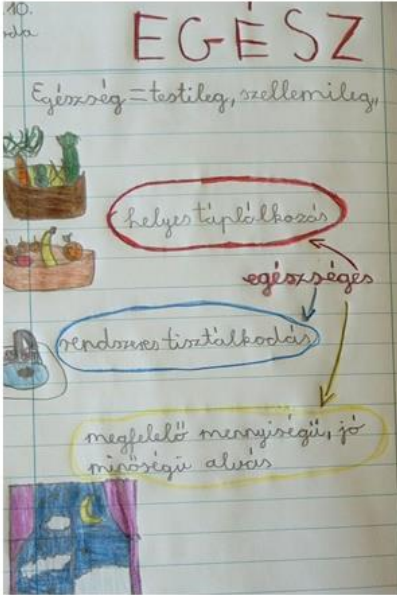 10.
EGÉSZ
Egészség = testileg, szellemileg,
helyes táplálkozás
egészséges
rendszeres tisztálkodás
megfelelő mennyiségű, jó
minőségű alvás